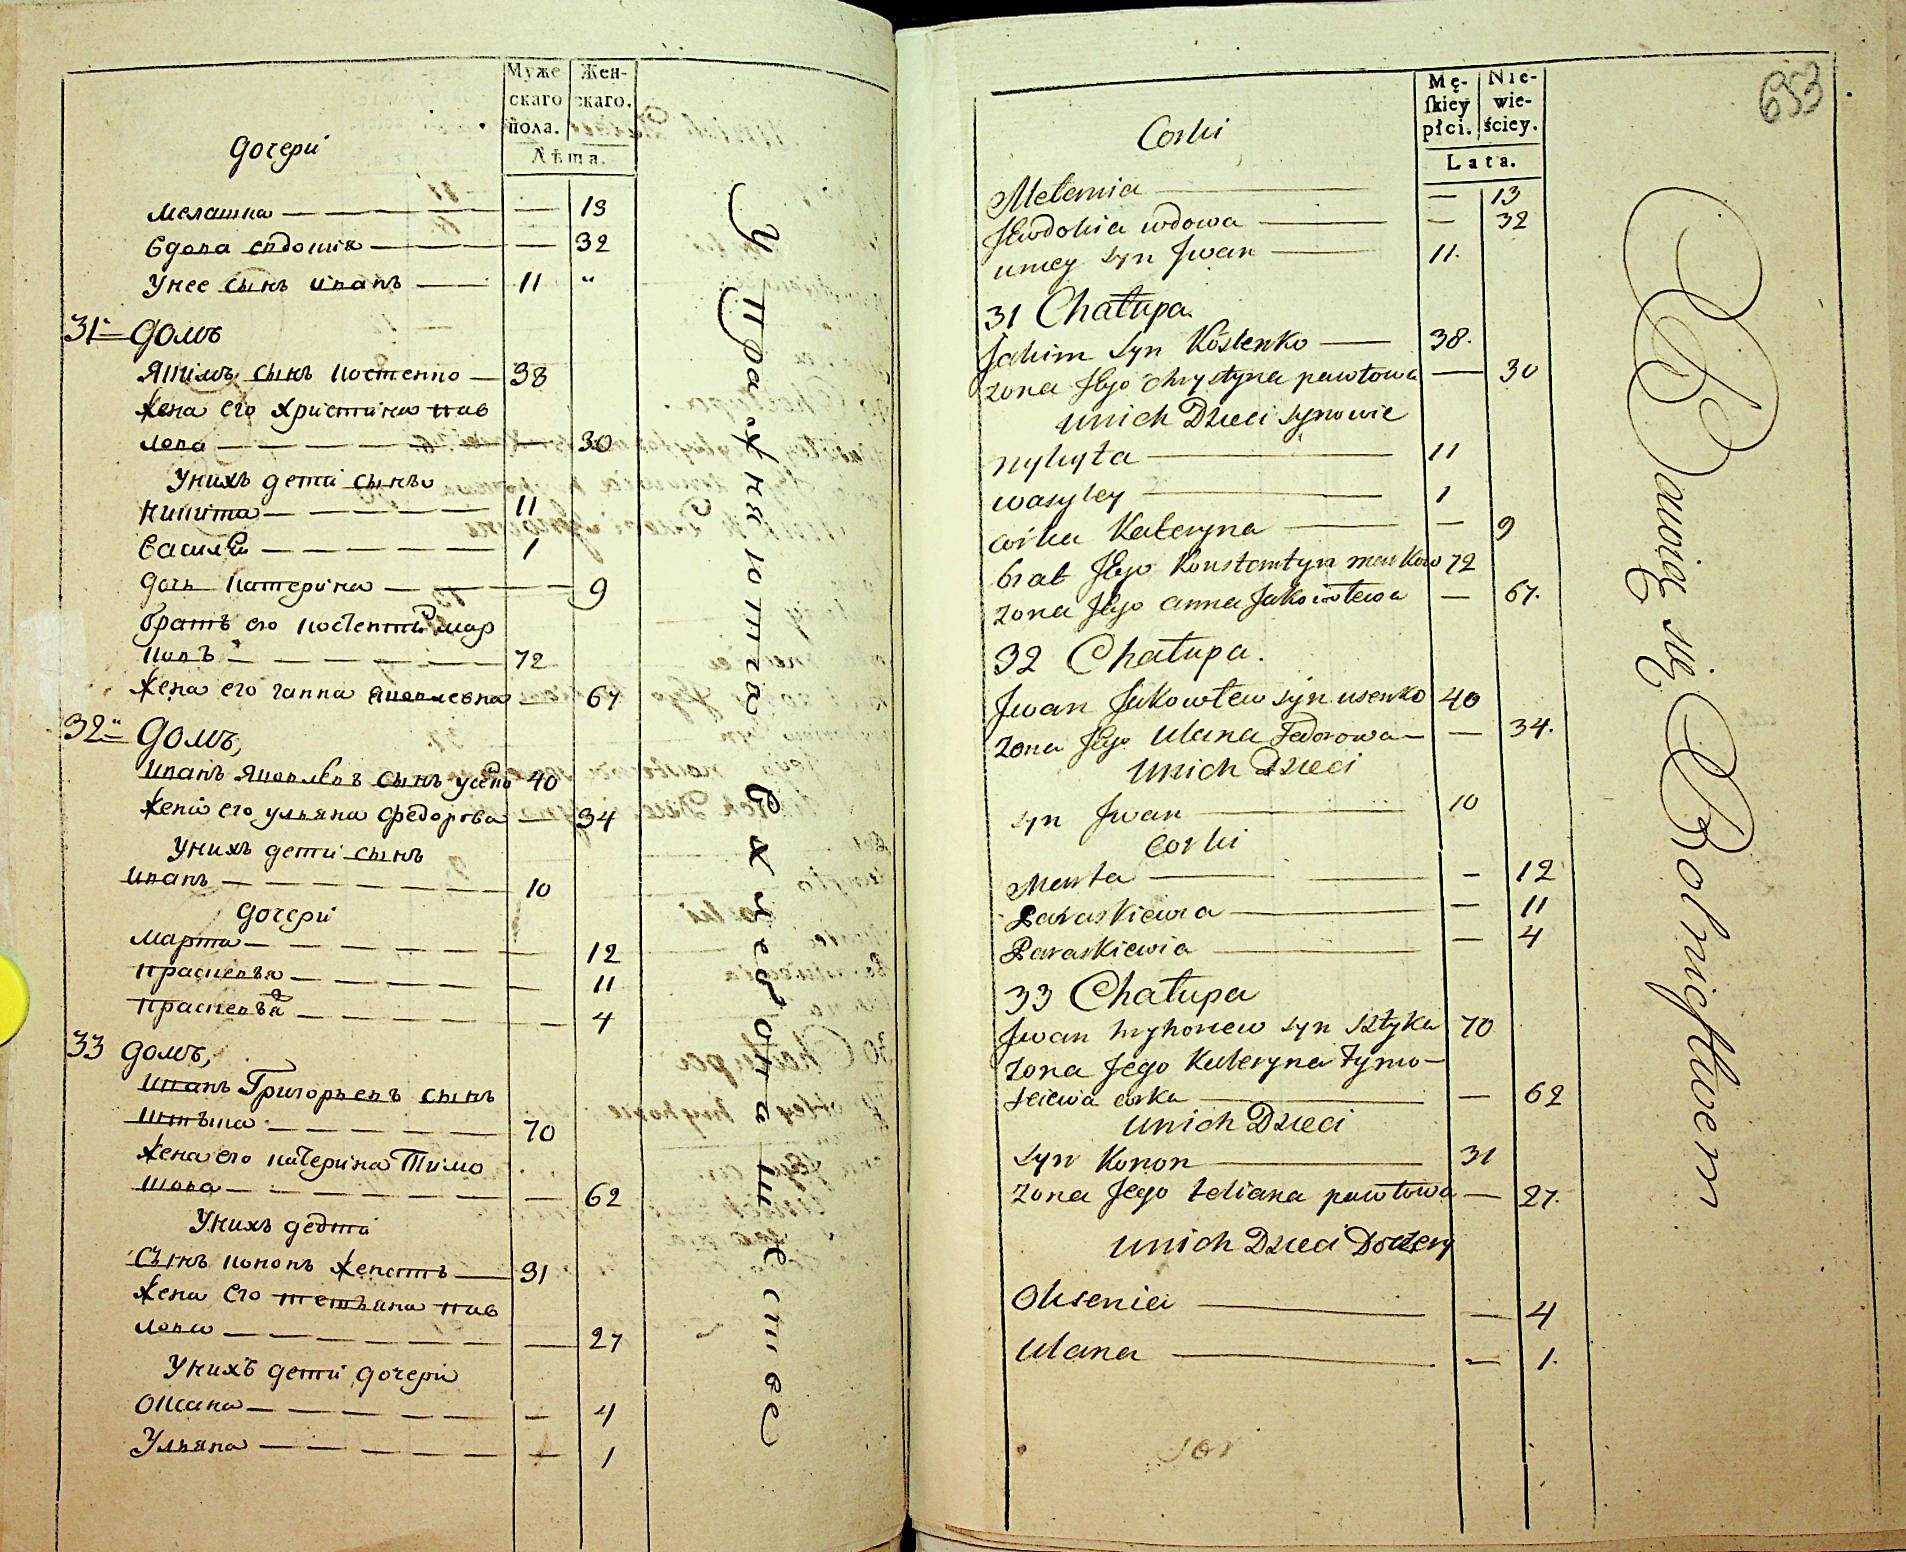 Муже-
скаго
пола.
Жен-
скаго.
Лѣта.
Дочери
Мелашка — — 13
Вдова евдокия — — 32
Унее сынъ иванъ — 11 "
31. Домъ
Якимъ сынъ Костенко — 38
Жена его христина пав
лова — — 30
Унихъ дети сынъ
Никита — 11
Василей — 1
Дочь Катерина — — 9
Братъ его Костентий мар
ковъ — 72
Жена его ганна яковлевна — 67
32. Домъ,
Иванъ Яковлевъ сынъ усенко 40
Жена его ульяна Федорова — 34
Унихъ дети сынъ
Иванъ — 10
Дочери
Марта — — 12
Прасковья — — 11
Прасковья — — 4
33 Домъ,
Иванъ Григорьевъ сынъ
— 70
Жена его Катерина Тимо
— — 62
Унихъ дети
Сынъ кононъ женатъ — 31
Жена его татьяна пав
лова — — 27
Унихъ дети дочери
Оксана — — 4
Ульяна — — 1
Упражняются
в хлебопашестве
Mę-
skiey
płci.
Nie-
wie-
ściey.
Lata.
653
Corki
Melania — — 13
Jewdokia wdowa — — 32
uniey syn Jwan — 11.
31 Chałupa.
Jakim syn Kostenko — 38.
zona Jego Chrystyna pawłowa — 30
unich Dzieci synowie
nykyta — 11
wasyley — 1
corka Kateryna — — 9
brat Jego Konstantyn markow 72
zona Jego anna Jakowlewa — 67.
32 Chałupa.
Jwan Jakowlew syn usenko 40
zona Jego Ulana Fedorowa — — 34.
Unich Dzieci
syn Jwan — 10
Corki
Marta — — 12
Paraskiewia — — 11
Paraskiewia — — 4
33 Chałupa
Jwan hryhoriew syn sztyka 70
zona Jego Kateryna tymo-
feiewa corka — — 62
unich Dzieci
syn Konon — 31
zona Jego tetiana pawłowa — 27.
unich Dzieci Doczery
Oksenia — — 4
Ulana — — 1.
Bawią się Rolnictwem